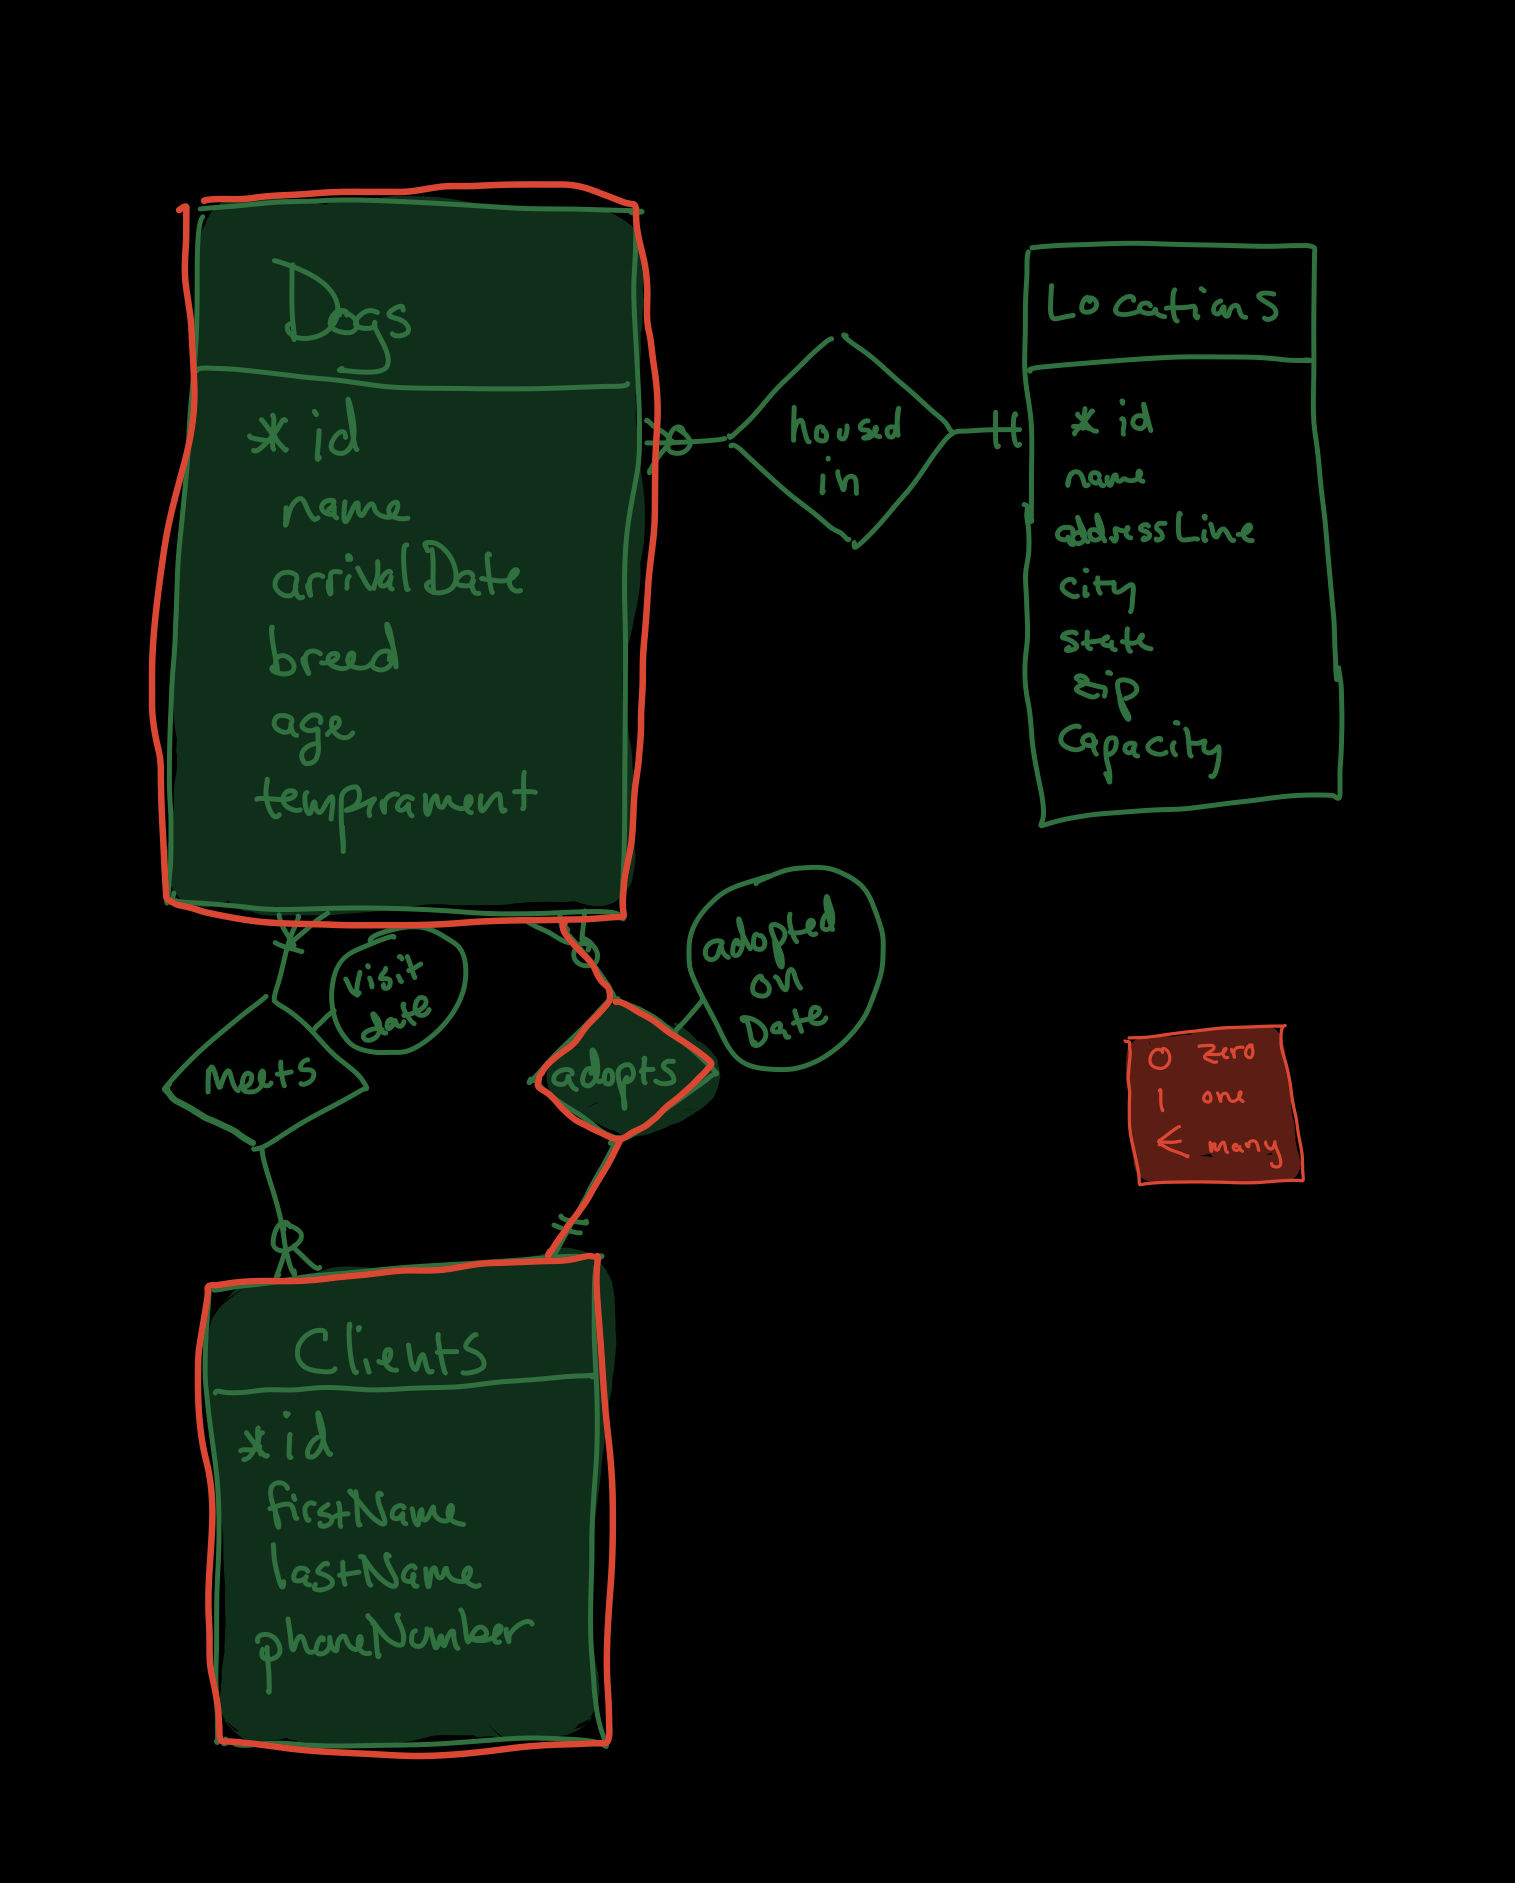 Dogs
*id
name
arrivalDate
breed
age
temprament
housed
in
Locations
* id
name
addressLine
city
state
zip
Capacity
visit
date
Meets
adopted
on
Date
adopts
O zero
| one
< many
Clients
*id
firstName
lastName
phoneNumber